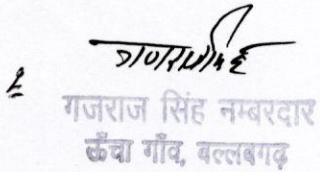 गजराज सिंह
गजराज सिंह नम्बरदार
ऊँचा गाँव, बल्लबगढ़